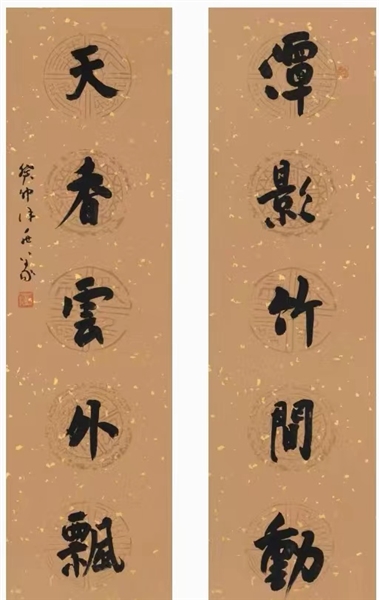 潭影竹間動
天香雲外飄
癸卯